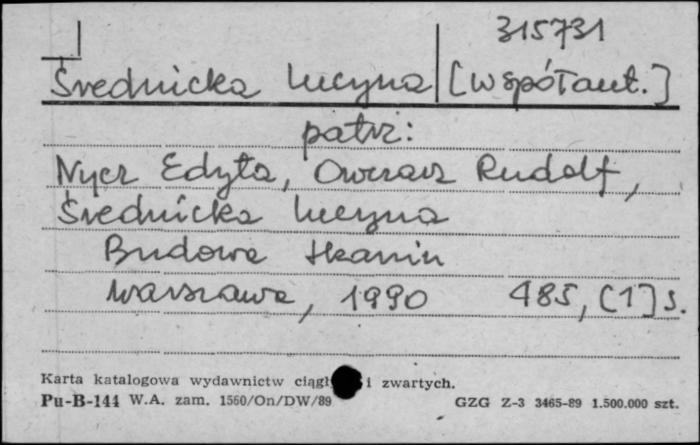 315731
Średnicka Lucyna [współaut.]
patrz:
Nycz Edyta, Owczarz Rudolf,
Średnicka Lucyna
Budowa tkanin
Warszawa, 1990 485, [1] s.
Karta katalogowa wydawnictw ciągł i zwartych.
Pu-B-144 W.A. zam. 1560/On/DW/89 GZG Z-3 3465-89 1.500.000 szt.